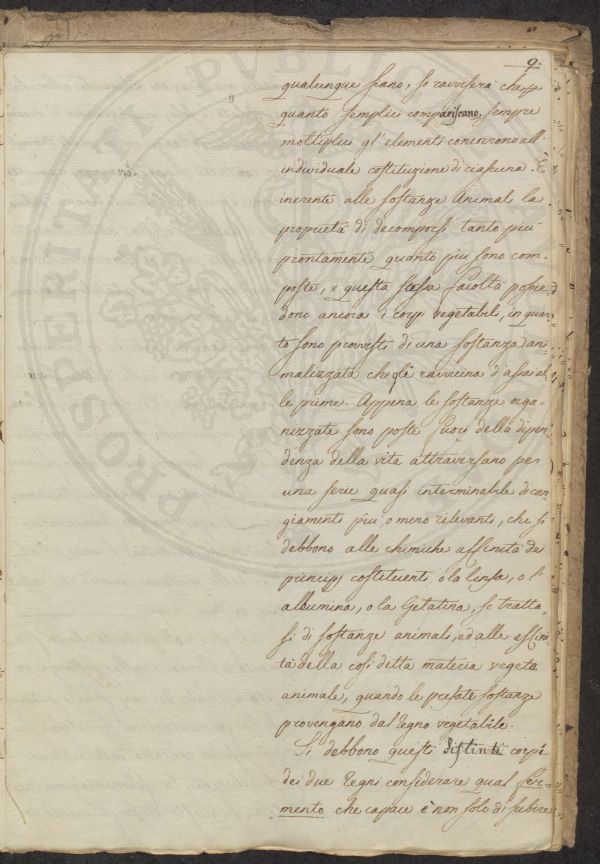 9.
qualunque siano, si ravviserà che
quanto semplici compariscano, sempre
moltiplici gl'elementi concorrono all'
individuale costituzione di ciascuna. È
inerente alle sostanze Animali la
proprietà di decomporsi tanto più
prontamente quanto più sono com-
poste, e questa stessa facoltà posse-
dono ancora i corpi vegetabili, in quan
to sono provvisti di una sostanza ani
malizzata che gli ravvicina d'assai al
le prime. Appena le sostanze orga-
nizzate sono poste fuori della dipen
denza della vita attraversano per
una serie quasi interminabile di can
giamenti più, o meno rilevanti, che si
debbono alle chimiche affinità dei
principj costituenti, o la linfa, o l'
albumina, o la Gelatina, se tratta-
si di sostanze animali, ed alle affini
tà della così detta materia vegeto
animale, quando le prefate sostanze
provengano dal Regno vegetabile.
Si debbono questi distinti corpi
dei due Regni considerare qual fer-
mento che capace è non solo di subire
PROSPERITATI PUBLICAE